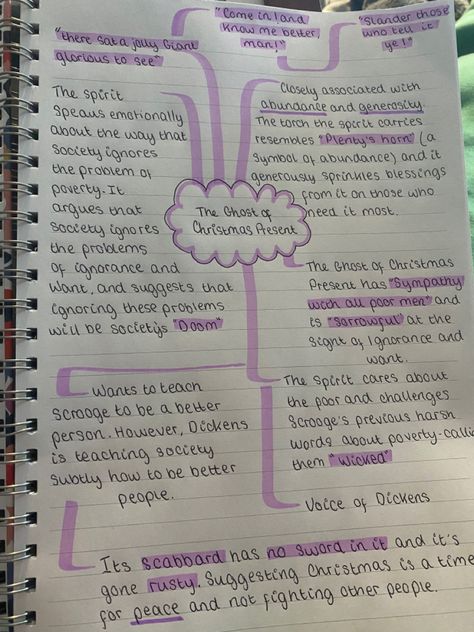 "there sat a jolly Giant
glorious to see"
"Come in! and
know me better,
man!"
"Slander those
who tell it
ye!"
The spirit
speaks emotionally
about the way that
society ignores
the problem of
poverty. It
argues that
society ignores
the problems
of ignorance and
want, and suggests that
ignoring these problems
will be societys "Doom"
Closely associated with
abundance and generosity.
The torch the spirit carries
resembles "Plenty's horn" (a
symbol of abundance) and it
generously sprinkles blessings
from it on those who
need it most.
The Ghost of
Christmas Present
The Ghost of Christmas
Present has "Sympathy
with all poor men" and
is "sorrowful" at the
sight of Ignorance and
want.
Wants to teach
scrooge to be a better
person. However, Dickens
is teaching society
subtly how to be better
people.
The spirit cares about
the poor and challenges
Scrooge's previous harsh
words about poverty-calli
them "wicked"
Voice of Dickens
Its scabbard has no sword in it and it's
gone rusty. Suggesting Christmas is a time
for peace and not fighting other people.